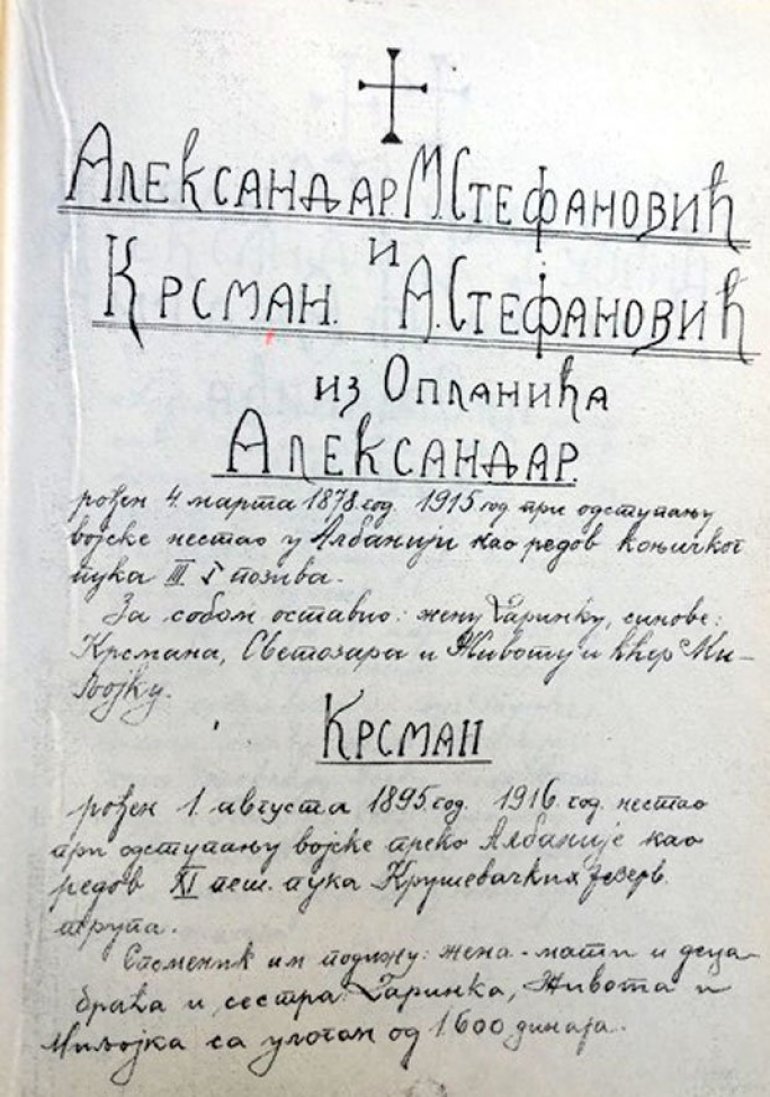 Александар М. Стефановић
и
Крсман. А. Стефановић
из Опланића
Александар.
рођен 4. марта 1878. год. 1915 год при одступању
војске нестао у Албанији као редов коњичког
пука III I позива.
За собом оставио: жену Даринку, синове:
Крсмана, Светозара и Животу и кћер Ми-
љојку.
Крсман
рођен 1. августа 1895 год. 1916. год. нестао
при одступању војске преко Албаније као
редов XI пеш. пука Крушевачких резерв.
трупа.
Споменик им подижу: жена-мати и деца-
браћа и сестра: Даринка, Живота и
Миљојка са улогом од 1600 динара.